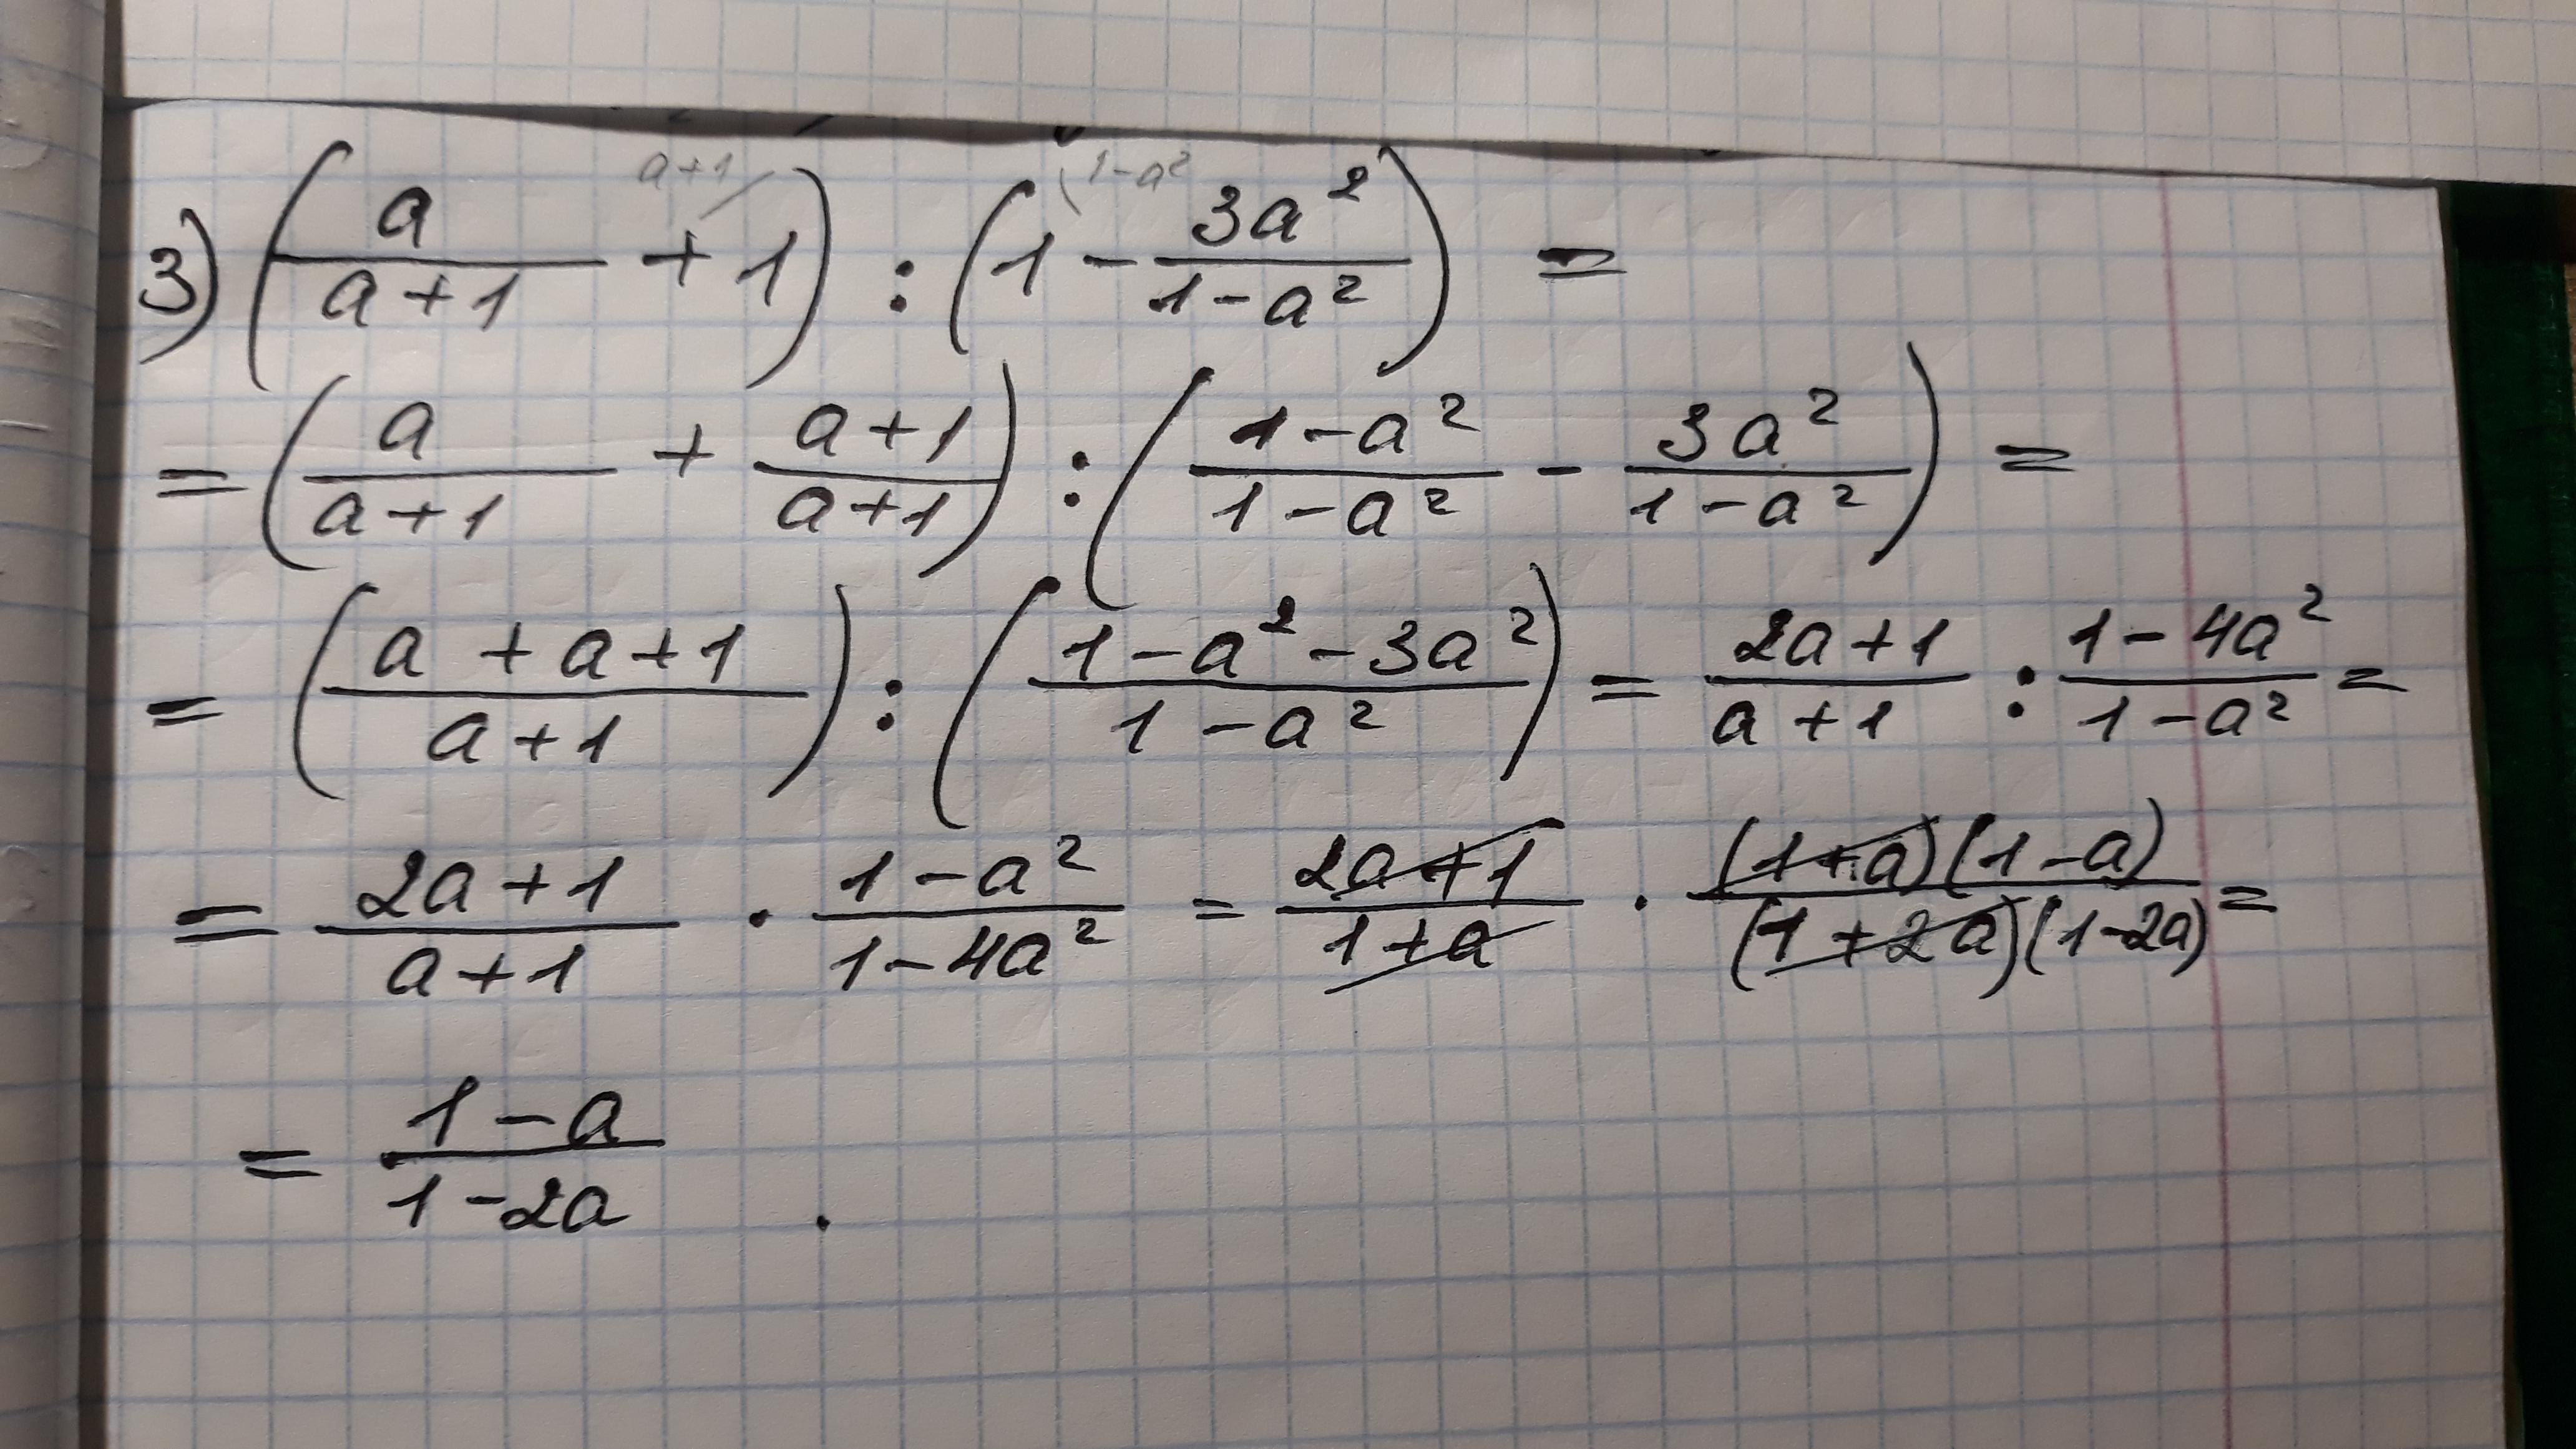 a+1 1-a²
3) (a/(a+1) + 1) : (1 - 3a²/(1-a²)) =
= (a/(a+1) + (a+1)/(a+1)) : ((1-a²)/(1-a²) - 3a²/(1-a²)) =
= ((a+a+1)/(a+1)) : ((1-a²-3a²)/(1-a²)) = (2a+1)/(a+1) : (1-4a²)/(1-a²) =
= (2a+1)/(a+1) · (1-a²)/(1-4a²) = (2a+1)/(1+a) · ((1+a)(1-a))/((1+2a)(1-2a)) =
= (1-a)/(1-2a) .